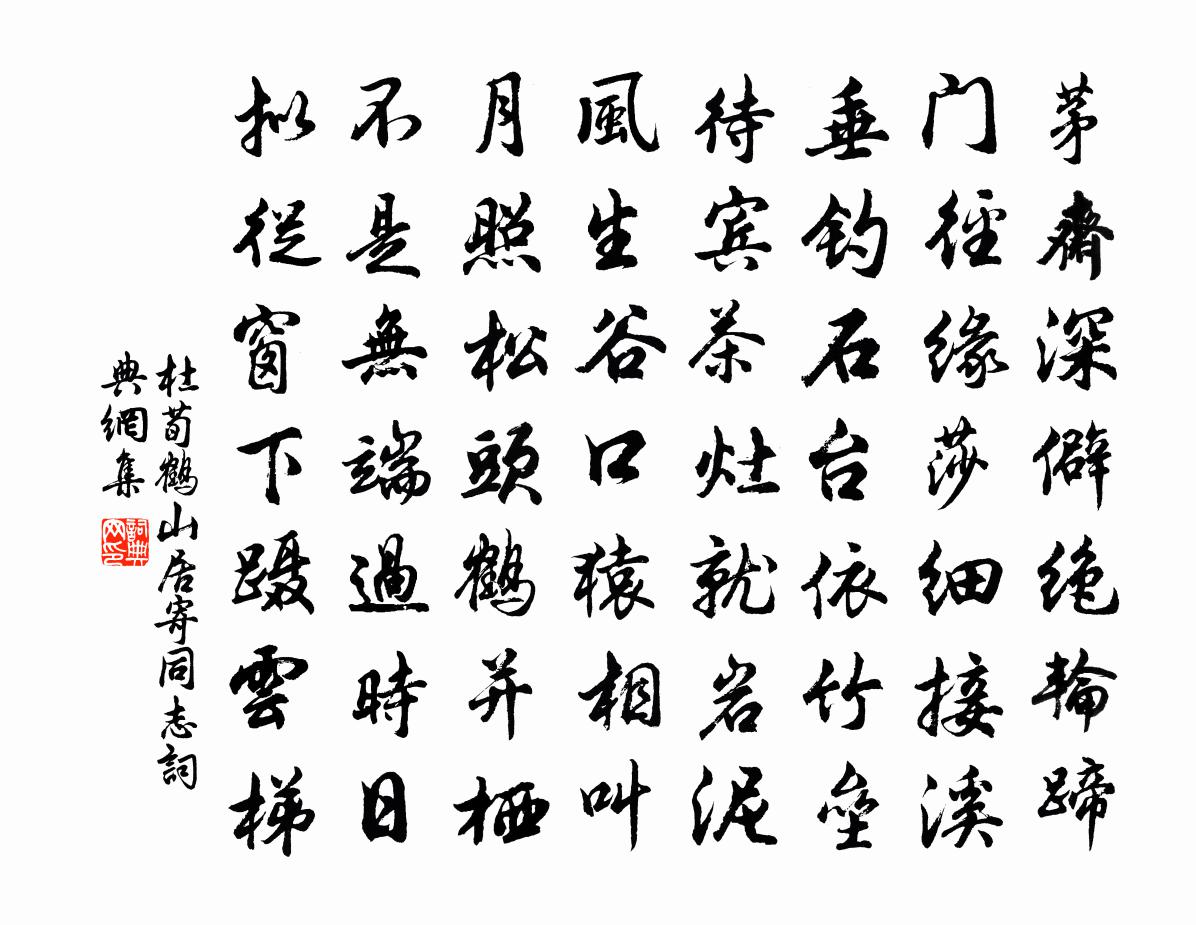 茅齋深僻绝輪蹄
门徑缘莎细接溪
垂钓石台依竹垒
待宾茶灶就岩泥
風生谷口猿相叫
月照松頭鹤并栖
不是無端過時日
拟從窗下蹑雲梯
杜荀鹤山居寄同志詞
典網集
詞典网印